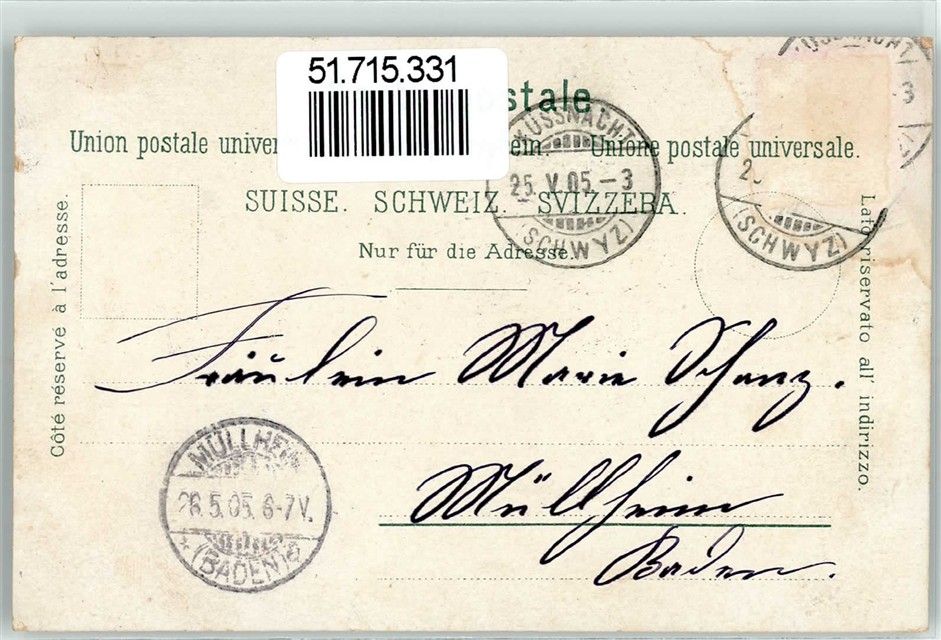 51.715.331
stale
Union postale univer ein. Unione postale universale.
SUISSE. SCHWEIZ. SVIZZERA.
Nur für die Adresse.
Côté réservé à l'adresse.
Lato riservato all' indirizzo.
KÜSSNACHT
25. V. 05. – 3
(SCHWYZ)
USSNACHT
2
3
(SCHWYZ)
Fräulein Marie Schanz.
Müllheim
Baden.
MÜLLHEIM
26.5.05. 6-7V.
(BADEN)